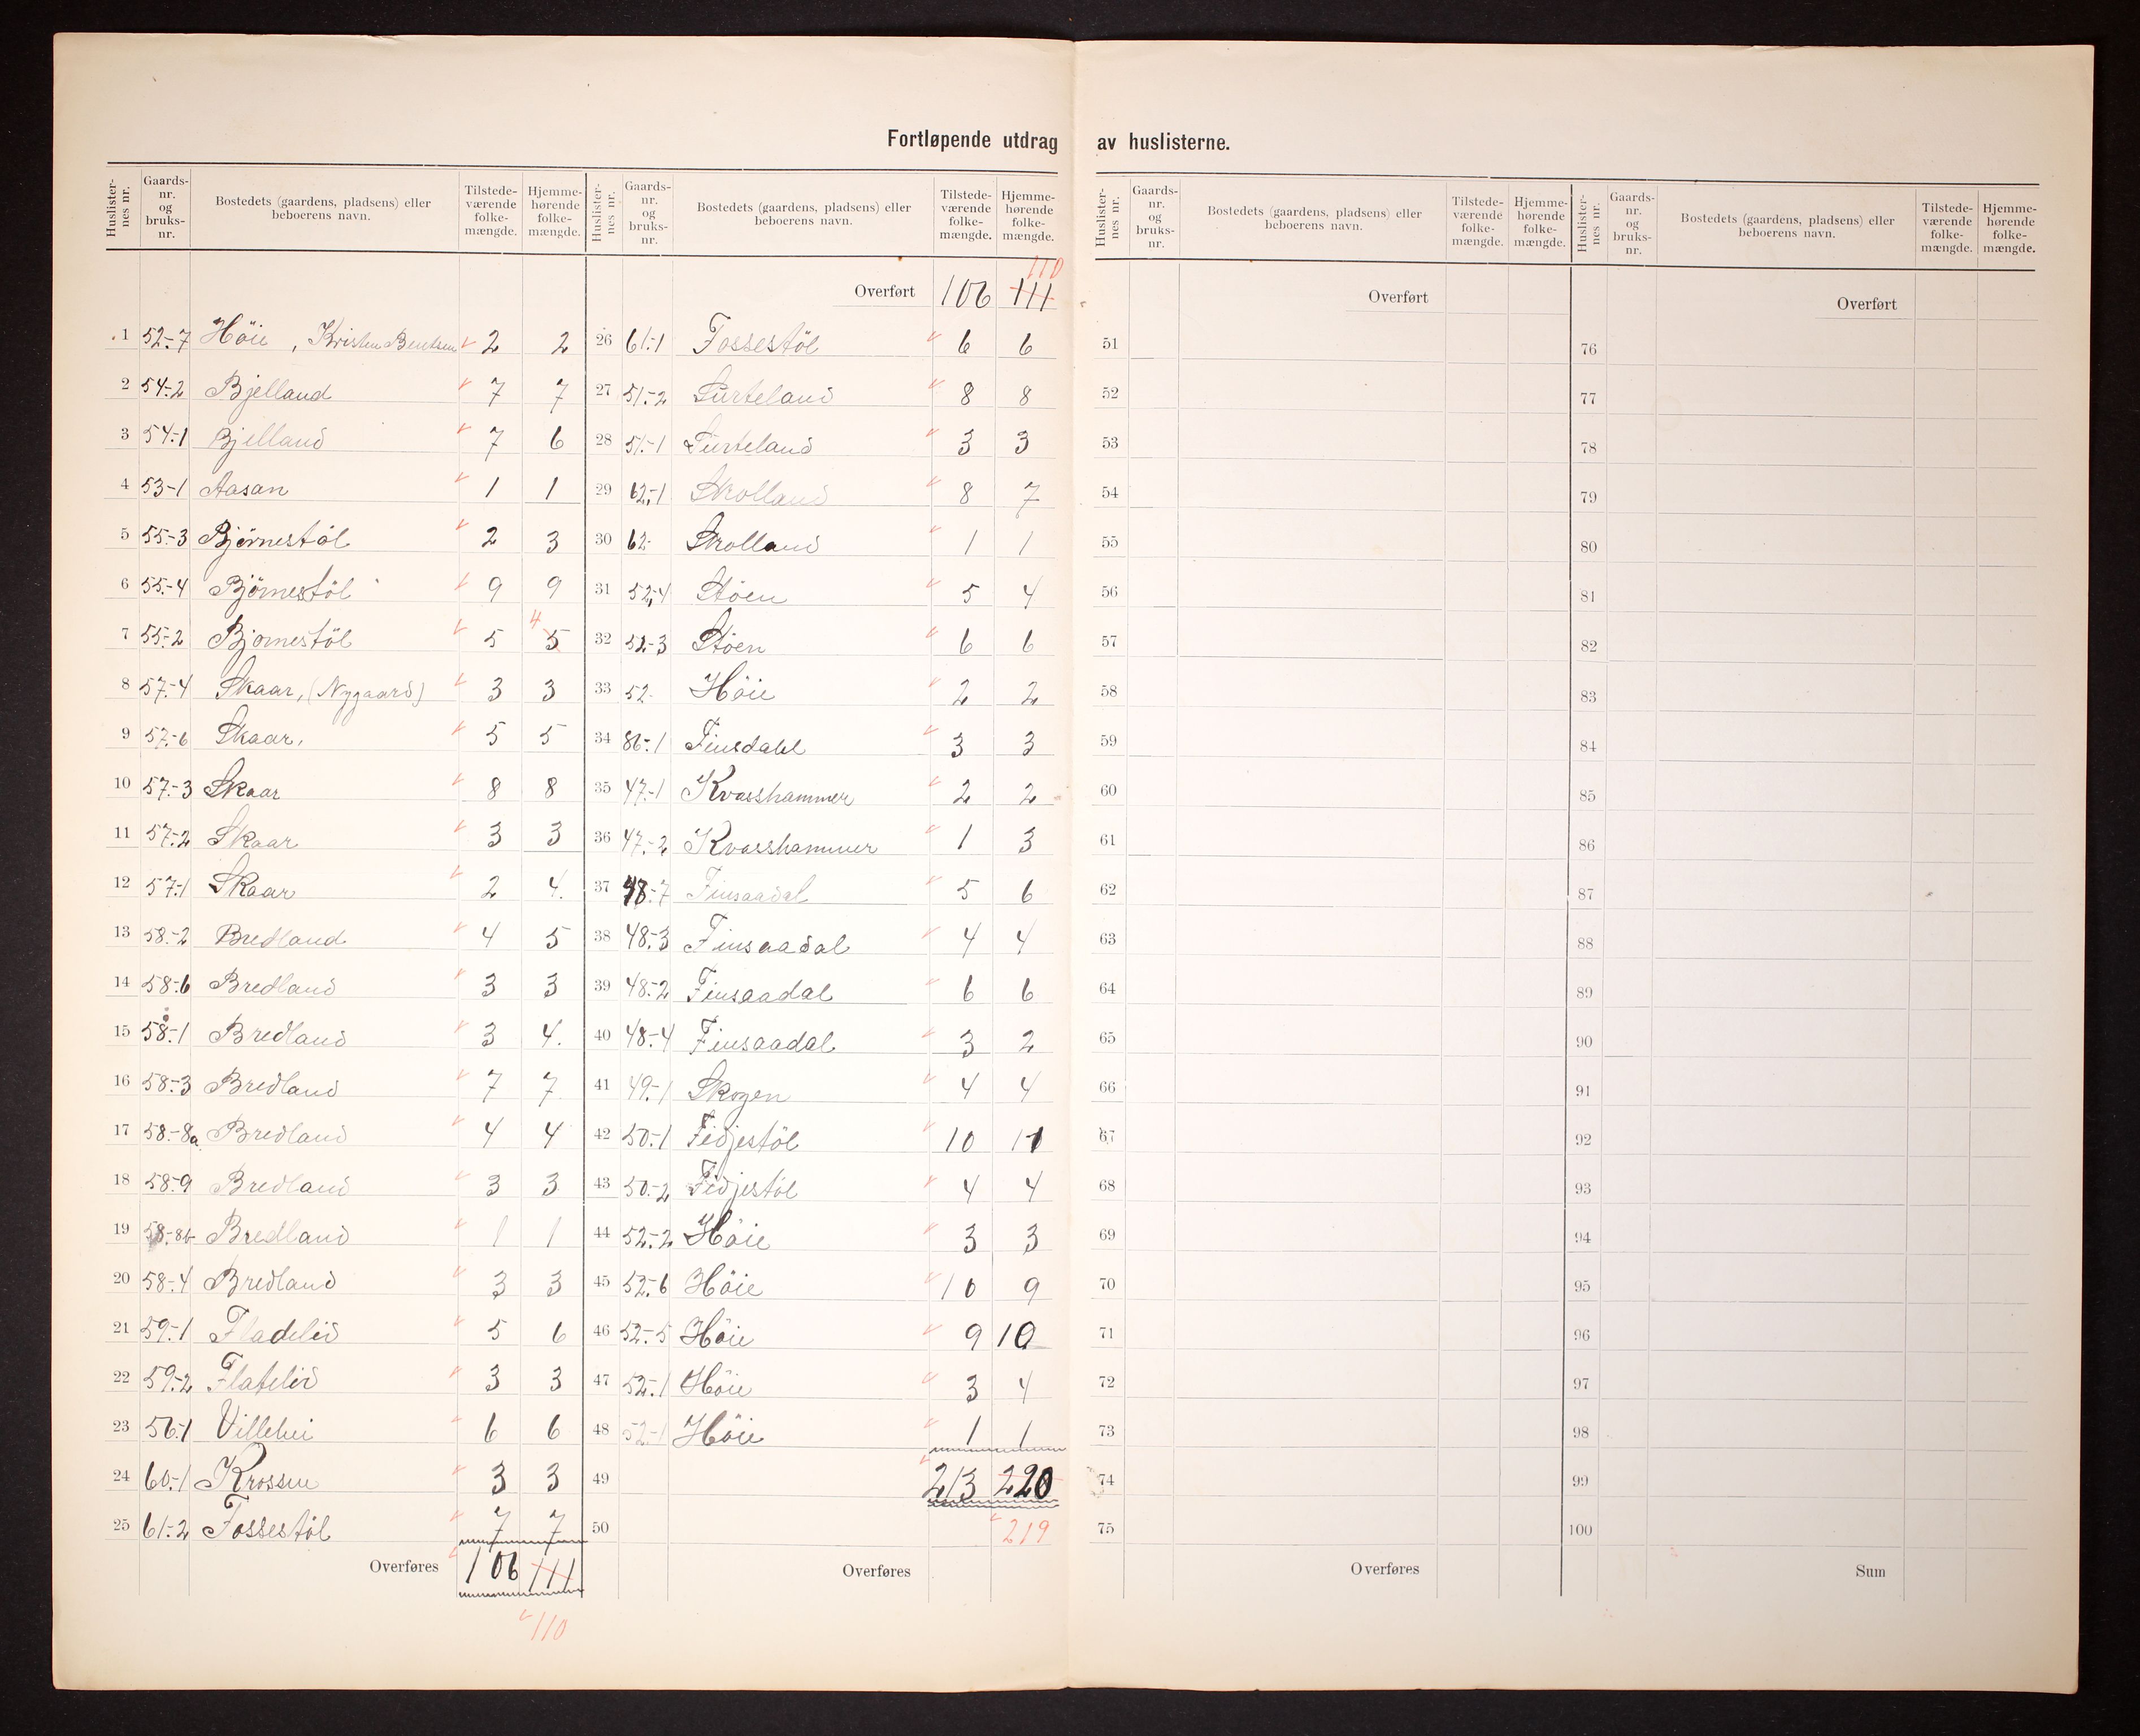 Fortløpende utdrag av huslisterne.
Huslister-nes nr. Gaards-nr. og bruks-nr. Bostedets (gaardens, pladsens) eller beboerens navn. Tilstede-værende folke-mængde. Hjemme-hørende folke-mængde.
1 52-7 Höie, Kristen Bentsen 2 2
2 54-2 Bjelland 7 7
3 54-1 Bjelland 7 6
4 53-1 Aasan 1 1
5 55-3 Bjørnestøl 2 3
6 55-4 Björnestöl 9 9
7 55-2 Bjornestöl 5 5 4
8 57-4 Skaar, (Nygaard) 3 3
9 57-6 Skaar, 5 5
10 57-3 Skaar 8 8
11 57-2 Skaar 3 3
12 57-1 Skaar 2 4.
13 58-2 Bredland 4 5
14 58-6 Bredland 3 3
15 58-1 Bredland 3 4.
16 58-3 Bredland 7 7
17 58-8a Bredland 4 4
18 58-9 Bredland 3 3
19 58-8b Bredland 1 1
20 58-4 Bredland 3 3
21 59-1 Fladelid 5 6
22 59-2 Flatelid 3 3
23 56-1 Villehei 6 6
24 60-1 Krossen 3 3
25 61-2 Fossestöl 7 7
Overføres 106 111
110
Huslister-nes nr. Gaards-nr. og bruks-nr. Bostedets (gaardens, pladsens) eller beboerens navn. Tilstede-værende folke-mængde. Hjemme-hørende folke-mængde.
110
Overført 106 111
26 61-1 Fossestöl 6 6
27 51-2 Surteland 8 8
28 51-1 Surteland 3 3
29 62-1 Skolland 8 7
30 62- Skolland 1 1
31 52-4 Stöen 5 4
32 52-3 Stöen 6 6
33 52- Höie 2 2
34 86-1 Finsdahl 3 3
35 47-1 Kvasshammer 2 2
36 47-2 Kvasshammer 1 3
37 48-7 Finsaadal 5 6
38 48-3 Finsaadal 4 4
39 48-2 Finsaadal 6 6
40 48-4 Finsaadal 3 2
41 49-1 Skogen 4 4
42 50-1 Fidjestöl 10 11
43 50-2 Fidjestöl 4 4
44 52-2 Höie 3 3
45 52-6 Höie 10 9
46 52-5 Höie 9 10
47 52-1 Höie 3 4
48 52-1 Höie 1 1
49 213 220
50 219
Overføres
Huslister-nes nr. Gaards-nr. og bruks-nr. Bostedets (gaardens, pladsens) eller beboerens navn. Tilstede-værende folke-mængde. Hjemme-hørende folke-mængde.
Overført
51
52
53
54
55
56
57
58
59
60
61
62
63
64
65
66
67
68
69
70
71
72
73
74
75
Overføres
Huslister-nes nr. Gaards-nr. og bruks-nr. Bostedets (gaardens, pladsens) eller beboerens navn. Tilstede-værende folke-mængde. Hjemme-hørende folke-mængde.
Overført
76
77
78
79
80
81
82
83
84
85
86
87
88
89
90
91
92
93
94
95
96
97
98
99
100
Sum